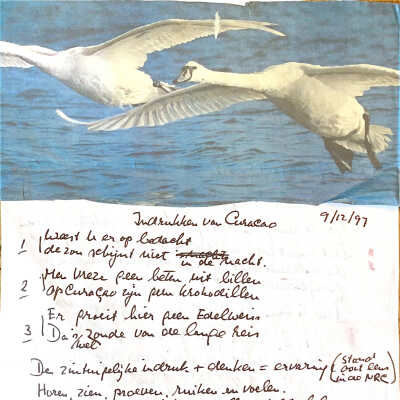 Indrukken van Curacao 9/12/97
1 Weest U er op bedacht
de zon schijnt niet in de nacht.
2 Men vreze geen beten uit billen
op Curaçao zijn geen krokodillen
3 Er groeit hier geen Edelweis
Da's zonde van de lange reis
wel
De zintuigelijke indruk + denken = ervaring (stond
ooit eens
in de NRC)
Horen, zien, proeven, ruiken en voelen.